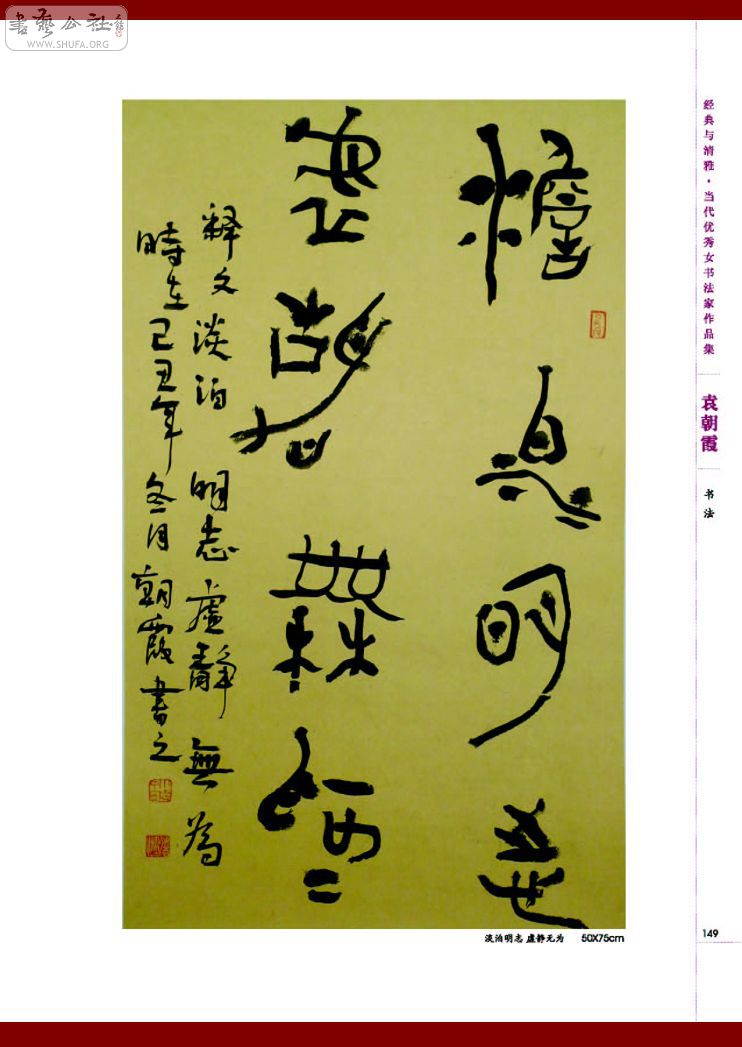 書藝公社
WWW.SHUFA.ORG
经典与清雅·当代优秀女书法家作品集
袁朝霞
书法
憺怕明志
虚静無為
释文淡泊 明志虚静 無為
時在己丑年冬月朝霞書之
淡泊明志 虚静无为 50X75cm
149